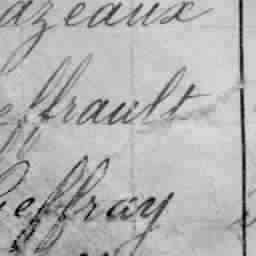 azeaux
effrault
Geffray